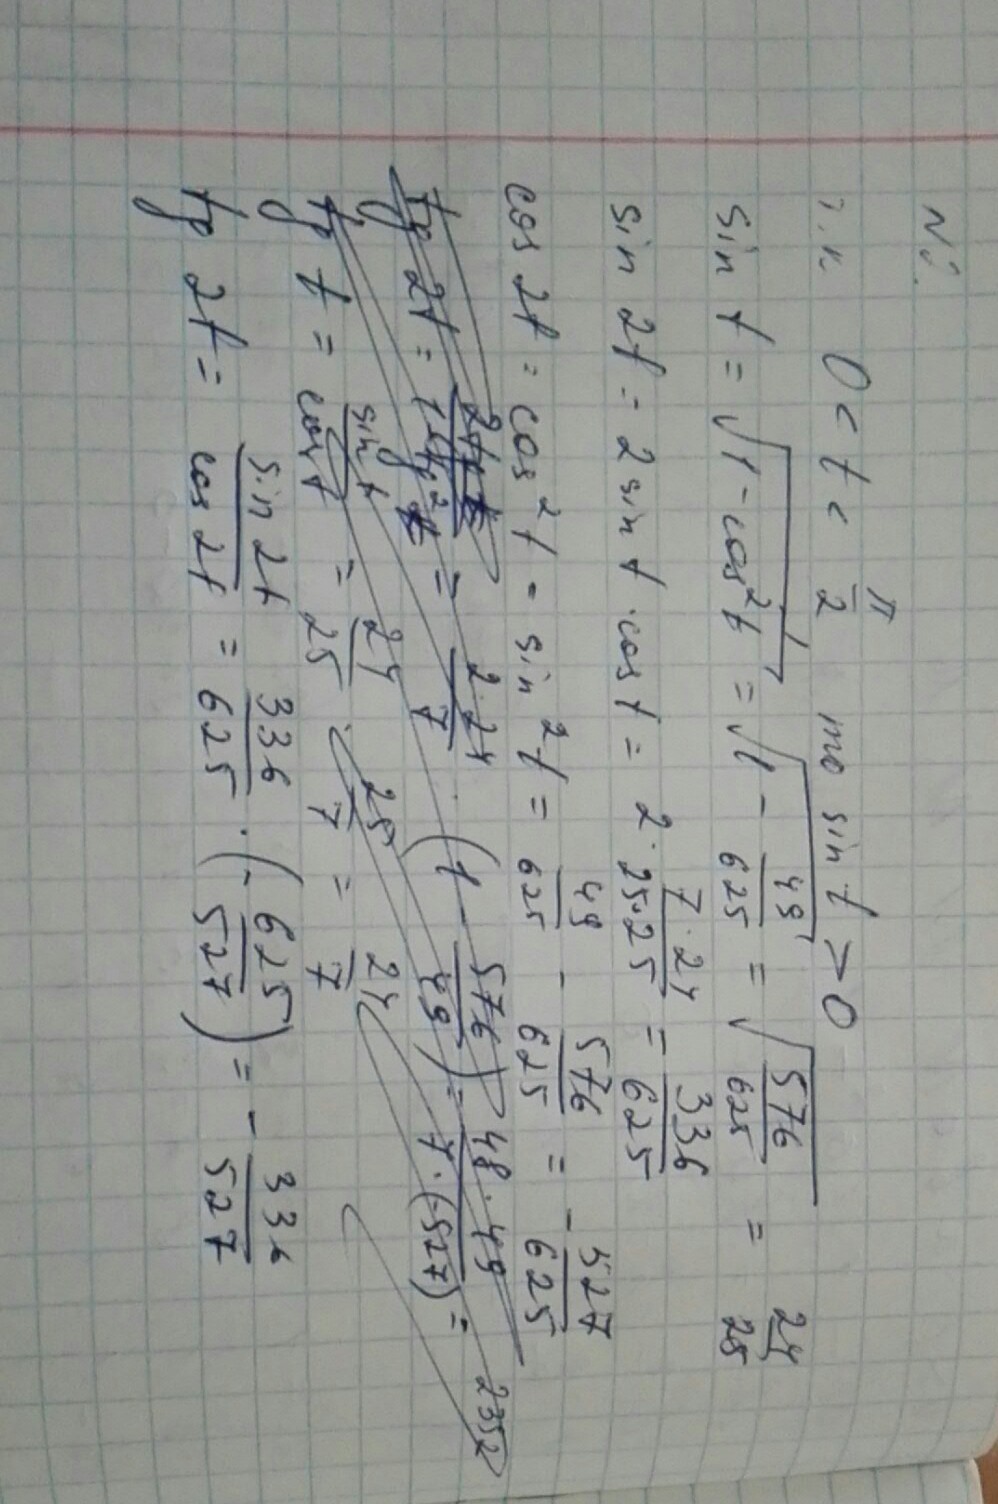 N2.
т.к. 0 < t < π/2 то sin t > 0
sin t = √(1 - cos² t) = √(1 - 49/625) = √(576/625) = 24/25
sin 2t = 2 sin t · cos t = 2 · (7 · 24)/(25 · 25) = 336/625
cos 2t = cos² t - sin² t = 49/625 - 576/625 = - 527/625
tg 2t = = (2 · 24)/7 : (1 - 576/49) = (48 · 49)/(7 · (-527)) = 2352
tg t = sin t/cos t = 24/25 : 25/7 = 24/7
tg 2t = sin 2t/cos 2t = 336/625 · (- 625/527) = - 336/527